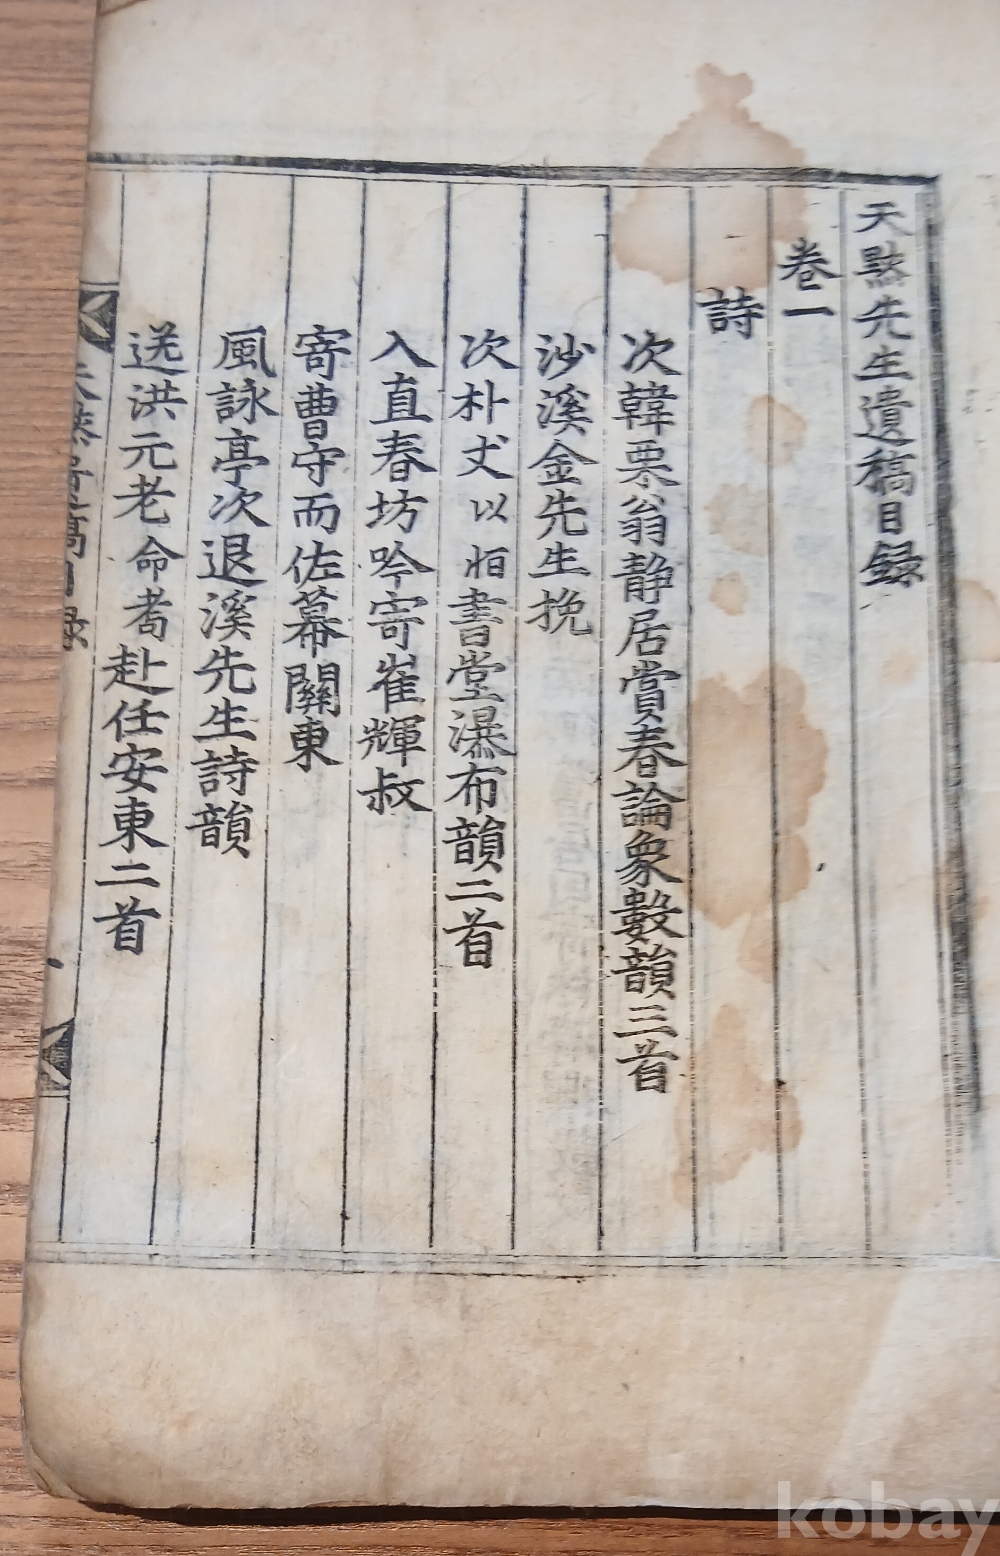 天默先生遺稿目録
卷一
詩
次韓栗翁静居賞春論象數韻三首
沙溪金先生挽
次朴丈以恒書堂瀑布韻二首
入直春坊吟寄崔輝叔
寄曹守而佐幕關東
風詠亭次退溪先生詩韻
送洪元老命耇赴任安東二首
kobay